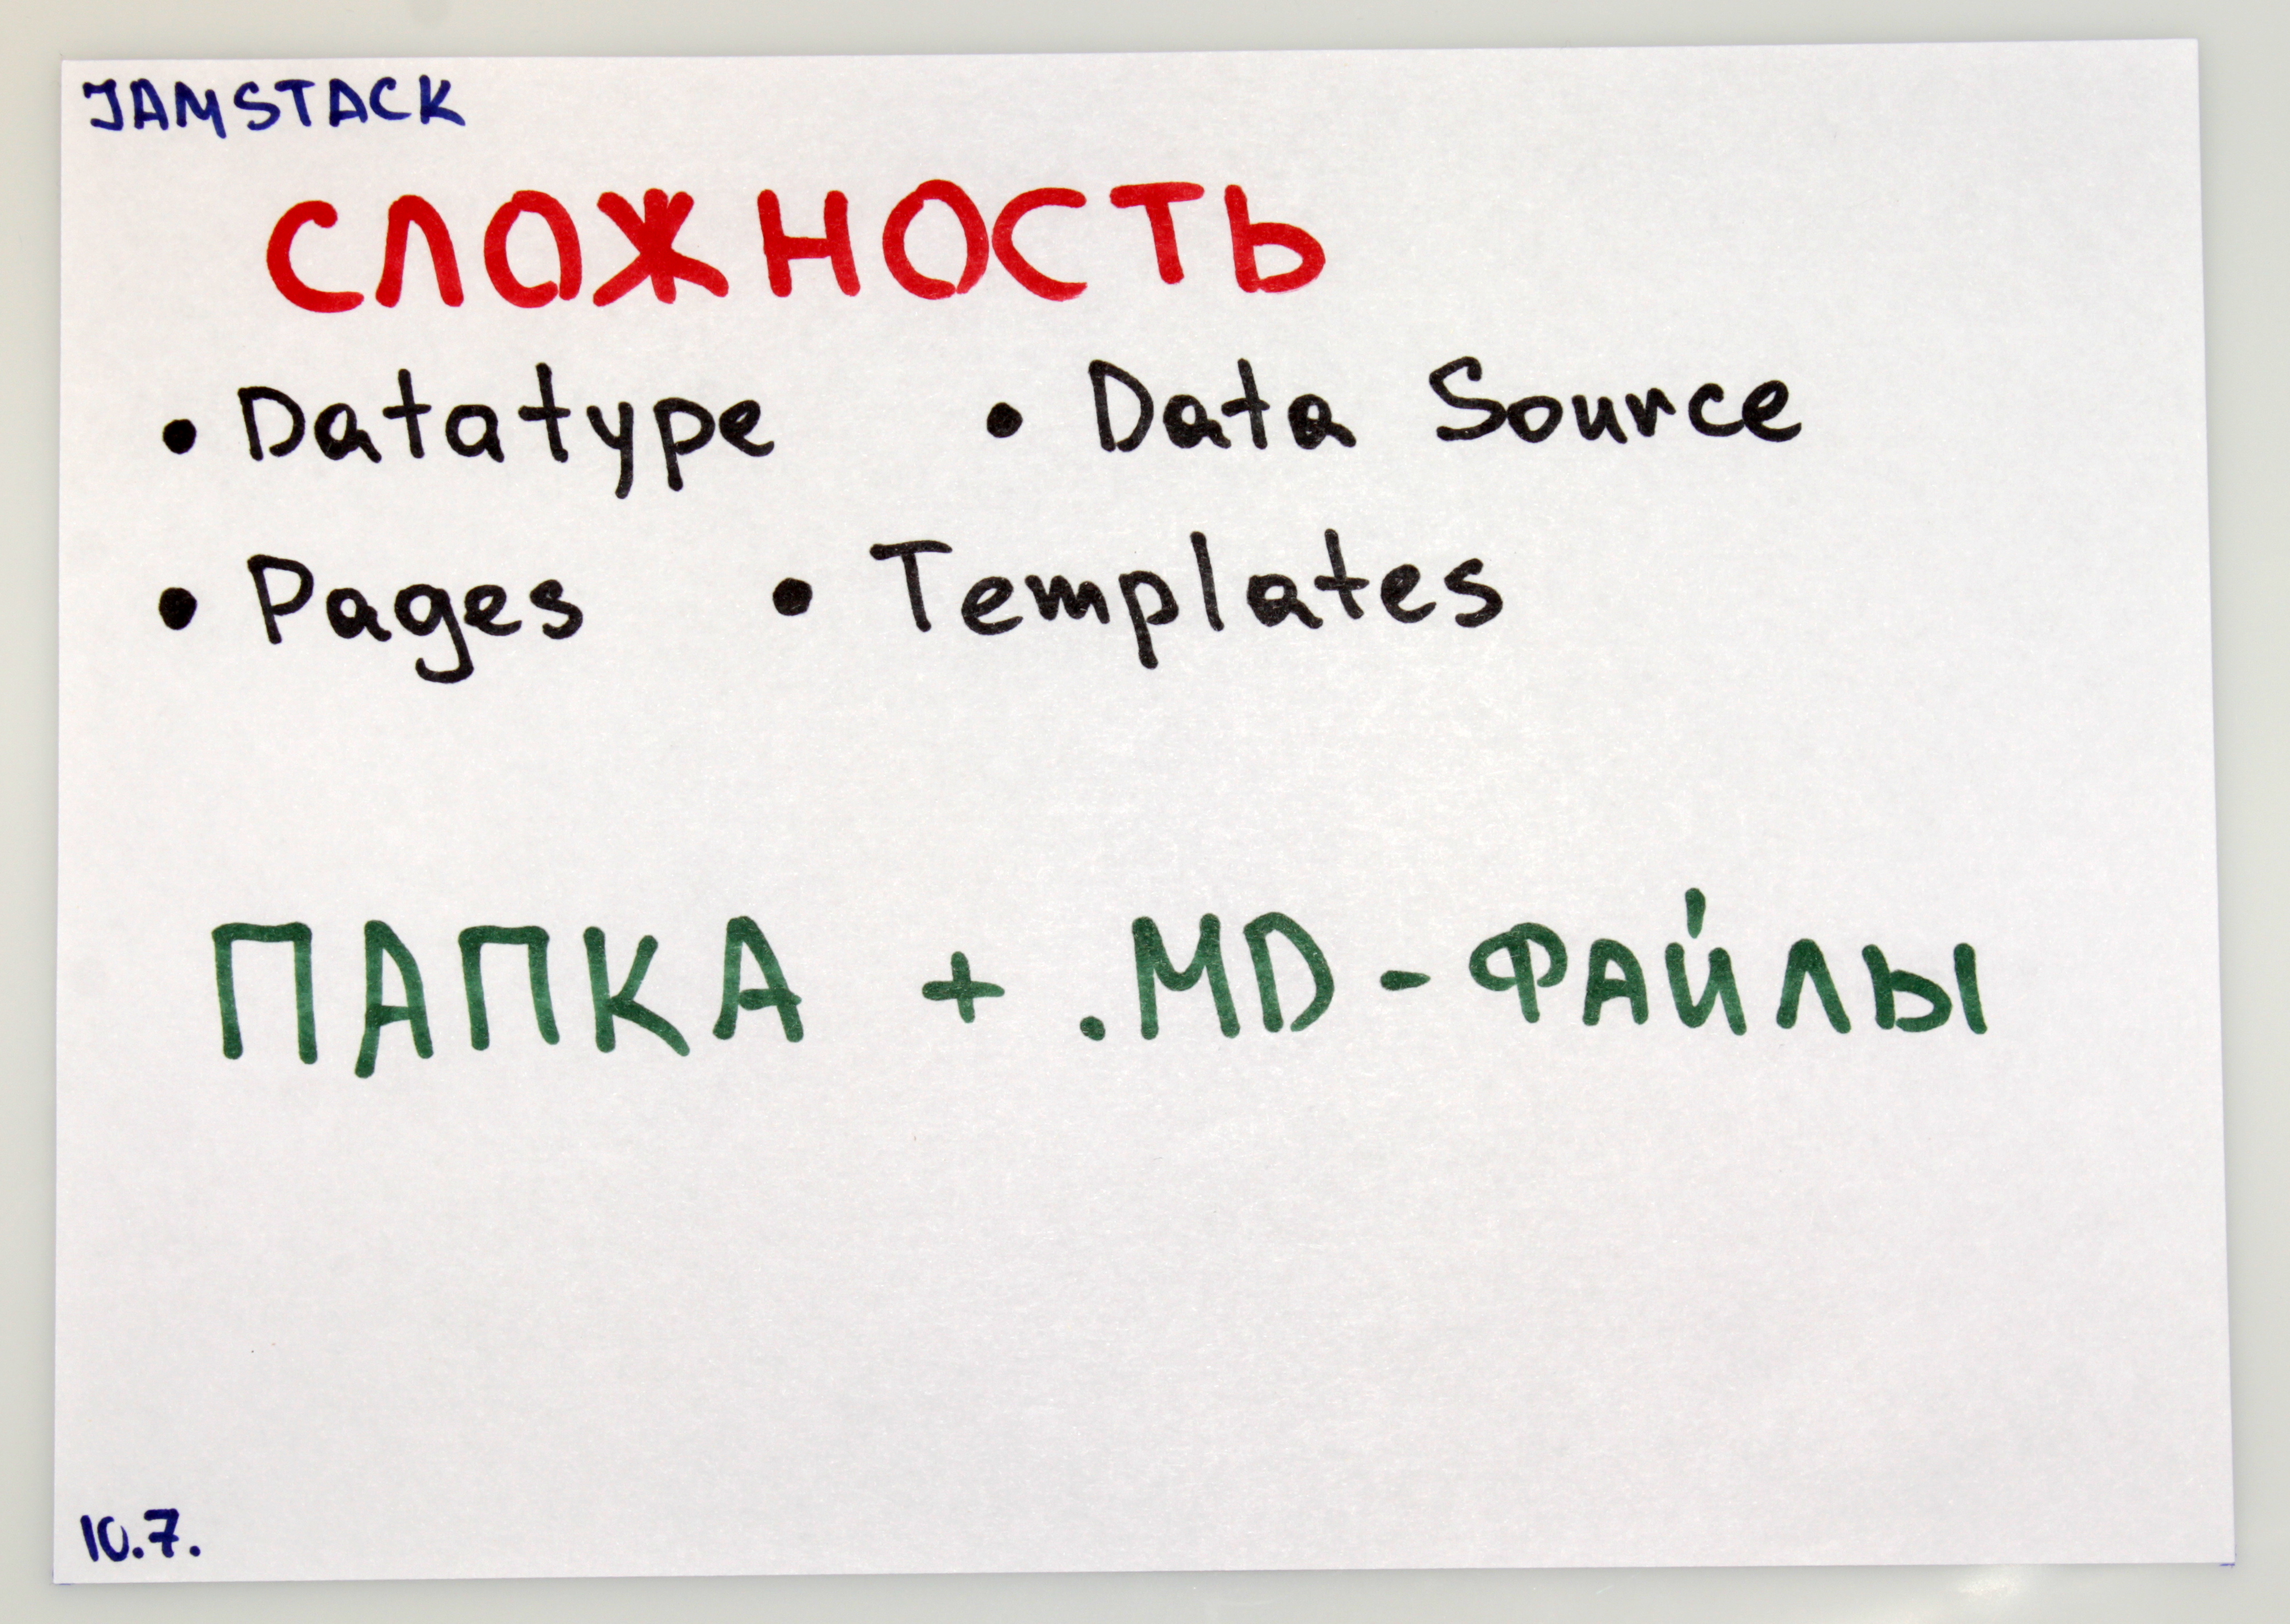 JAMSTACK
СЛОЖНОСТЬ
• Datatype • Data Source
• Pages • Templates
ПАПКА + .MD-ФАЙЛЫ
10.7.